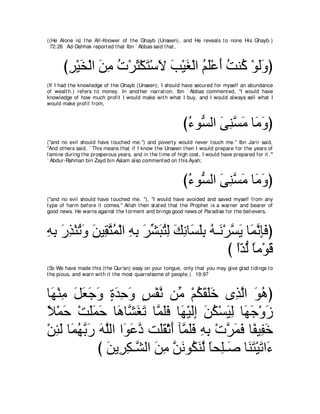 ((He Alone is) the All-Knower of the Ghayb (Unseen), and He reveals to none His Ghayb.)
72:26 Ad-Dahhak reported that Ibn `Abbas said that,
(وَلَوْ كُنتُ أَعْلَمُ الْغَيْبَ لاَسْتَكْثَرْتُ مِنَ الْخَيْرِ)
(If I had the knowledge of the Ghayb (Unseen), I should have secured for myself an abundance
of wealth.) refers to money. In another narration, Ibn `Abbas commented, "I would have
knowledge of how much profit I would make with what I buy, and I would always sell what I
would make profit from,
(وَمَا مَسَّنِىَ السُّوءُ)
("and no evil should have touched me.") and poverty would never touch me." Ibn Jarir said,
"And others said, `This means that if I know the Unseen then I would prepare for the years of
famine during the prosperous years, and in the time of high cost, I would have prepared for it.'"
`Abdur-Rahman bin Zayd bin Aslam also commented on this Ayah;
(وَمَا مَسَّنِىَ السُّوءُ)
("and no evil should have touched me. "), "I would have avoided and saved myself from any
type of harm before it comes." Allah then stated that the Prophet is a warner and bearer of
good news. He warns against the torment and brings good news of Paradise for the believers,
(فَإِنَّمَا يَسَّرْنَـهُ بِلَسَانِكَ لِتُبَشِّرَ بِهِ الْمُتَّقِينَ وَتُنْذِرَ بِهِ
قَوْماً لُّدّاً )
(So We have made this (the Qur'an) easy on your tongue, only that you may give glad tidings to
the pious, and warn with it the most quarrelsome of people.) 19:97
(هُوَ الَّذِى خَلَقَكُمْ مِّن نَّفْسٍ وَحِدَةٍ وَجَعَلَ مِنْهَا
زَوْجَهَا لِيَسْكُنَ إِلَيْهَا فَلَماَّ تَغَشَّاهَا حَمَلَتْ حَمْلاً
خَفِيفًا فَمَرَّتْ بِهِ فَلَمَّآ أَثْقَلَت دَّعَوَا اللَّهَ رَبَّهُمَا لَئِنْ
ءَاتَيْتَنَا صَـلِحاً لَّنَكُونَنَّ مِنَ الشَّـكِرِينَ )